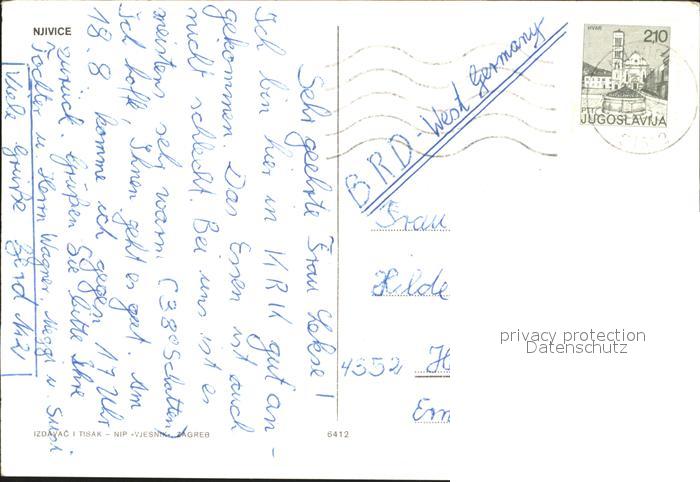 NJIVICE
Sehr geehrte Frau !
Ich bin hier in KRK gut an-
gekommen. Das Essen ist auch
nicht schlecht. Bei uns ist es
meistens sehr warm (38° Schatten)
Ich hoffe, Ihnen geht es gut. Am
18.8. komme ich gegen 17 Uhr
zurück. Grüßen Sie bitte Ihre
Tochter u. Herrn Wagner, u. Susi.
Viele Grüße
IZDAVAČ I TISAK – NIP »VJESNIK« ZAGREB
6412
BRD - West Germany
HVAR
2,10
PTT
JUGOSLAVIJA
Frau
Hilde
4352 H
Em
privacy protection
Datenschutz